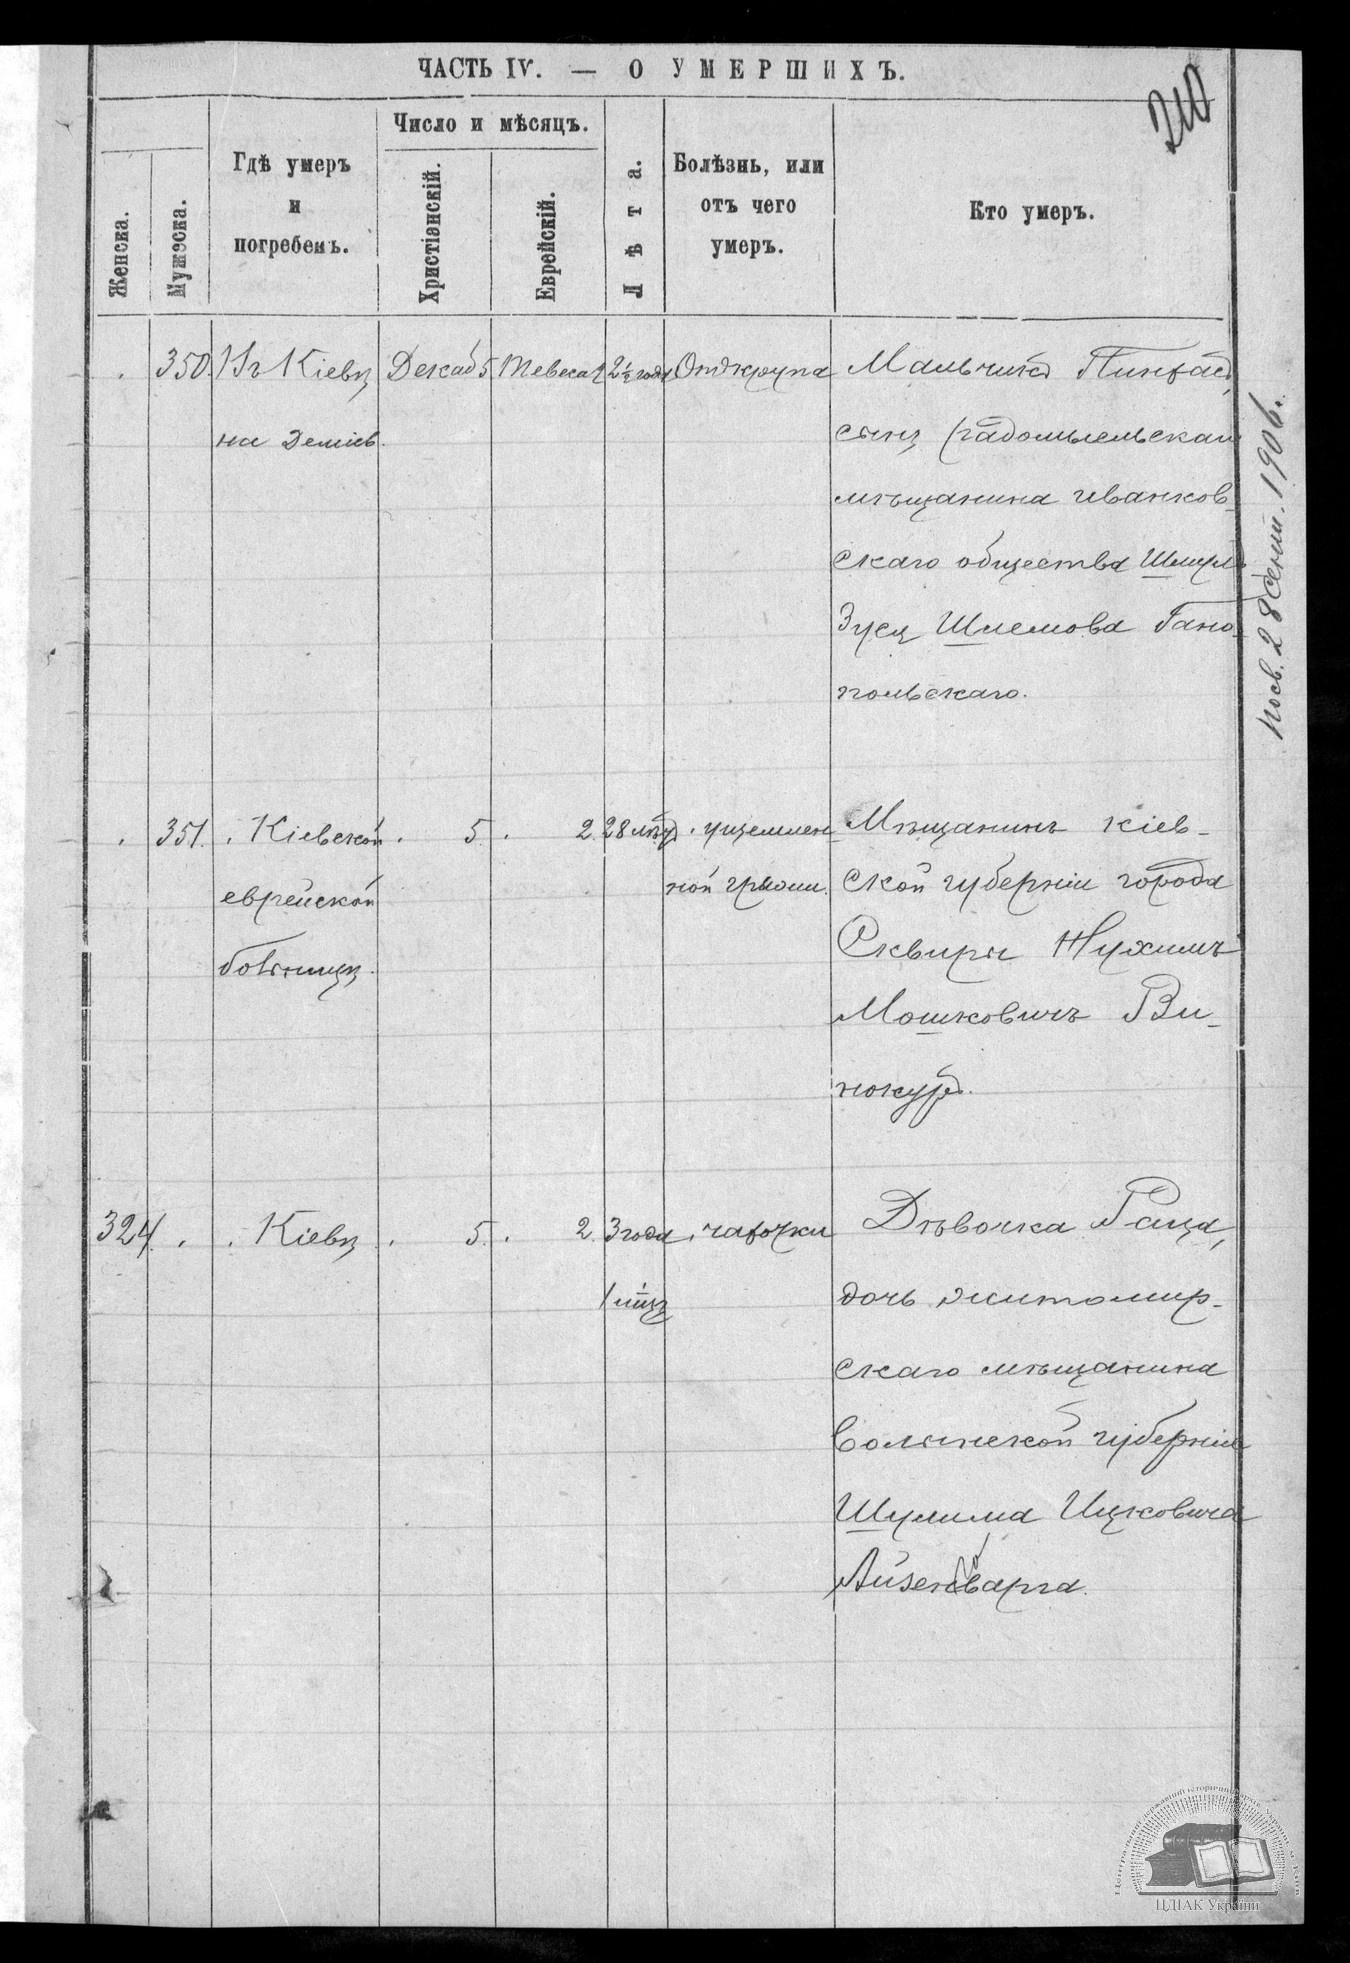 ЧАСТЬ IV. — О УМЕРШИХЪ.
210
Женска.
Мужеска.
Гдѣ умеръ
и
погребенъ.
Число и мѣсяцъ.
Христіянскій.
Еврейскій.
Лѣта.
Болѣзнь, или
отъ чего
умеръ.
Кто умеръ.
350. Въ Кіевѣ Декаб 5 Тевеса 2 2½ года Отъ крупа Мальчикъ Пинхасъ,
на Деміев. сынъ Радомысльскаго
мѣщанина Иванков-
скаго общества Шмуль
Зуся Шлемова Гано-
польскаго.
посв. 28 Сент. 1906.
351. Кіевской 5. 2. 28 лѣтъ ущемлен- Мѣщанинъ Кіев-
еврейской ной грыжи. ской губерніи города
больницѣ. Сквиры Нухимъ
Мошковичъ Ви-
нокуръ.
324. Кіевѣ 5. 2. 3 года чахотки Дѣвочка Раца,
1 мѣц дочь житомир-
скаго мѣщанина
Волынской губерніи
Шулима Ицковича
Айзенварга.
ЦДІАК України